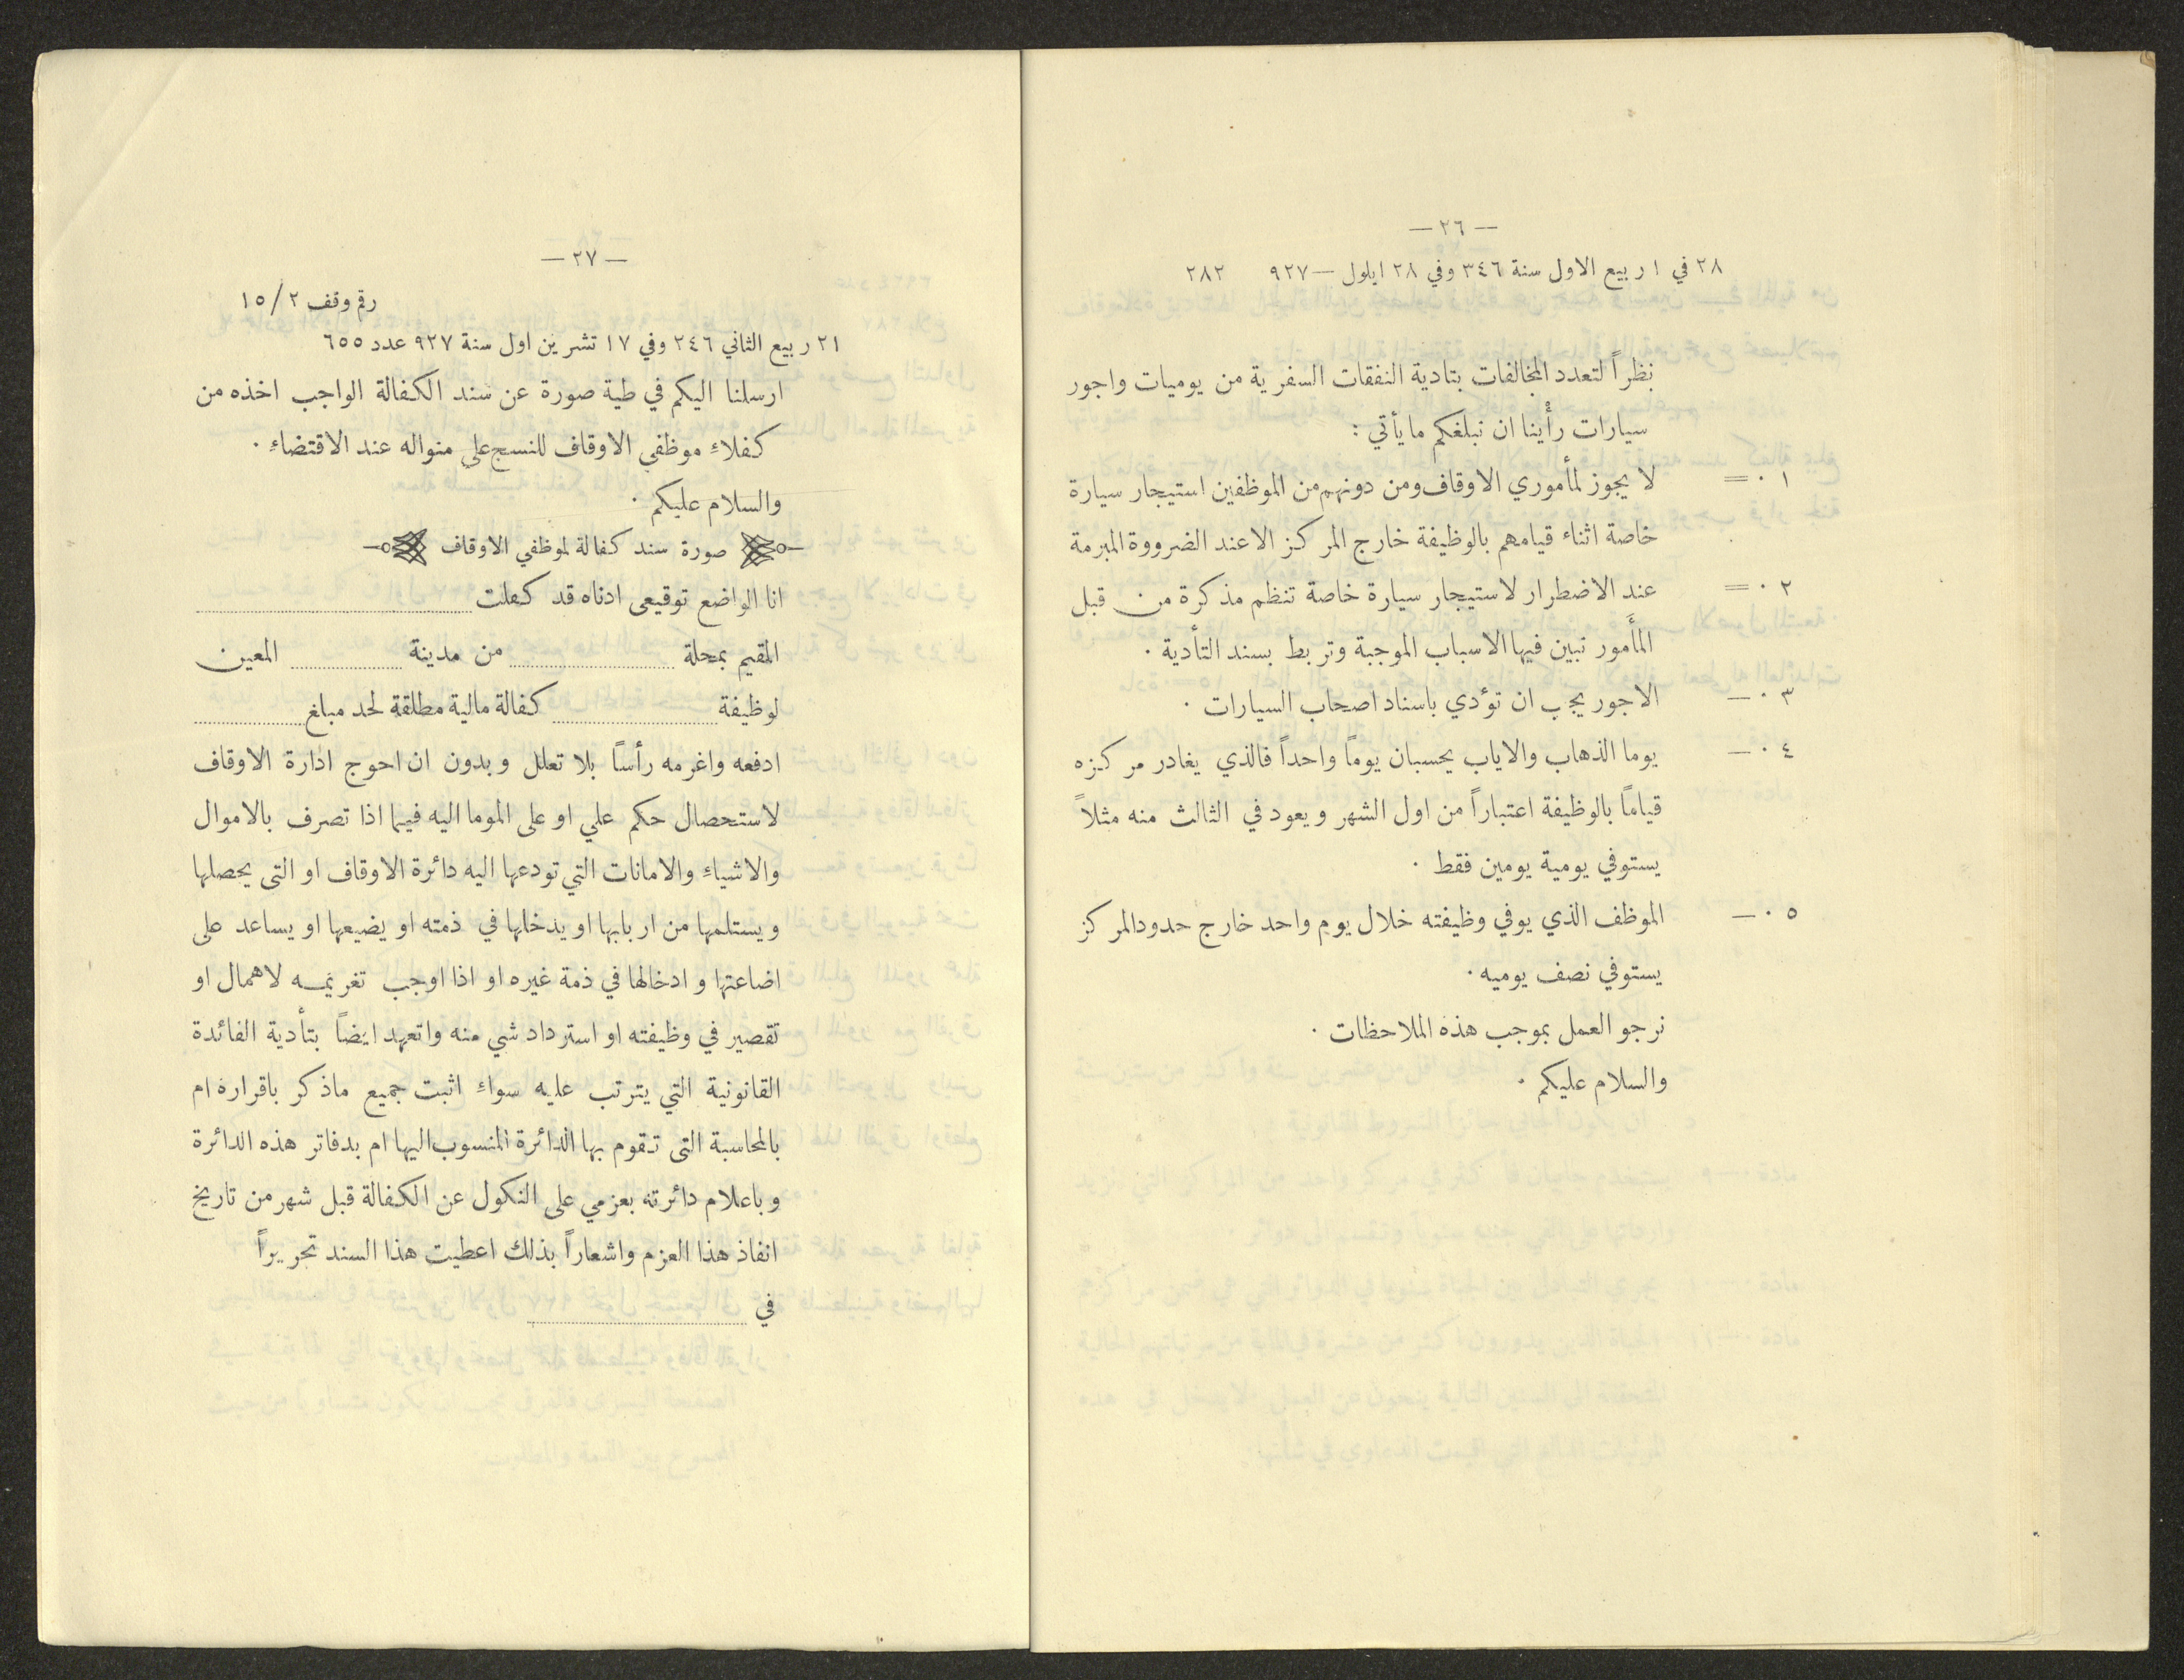 — ٢٦ —
٢٨ في ١ ربيع الاول سنة ٣٤٦ وفي ٢٨ ايلول — ٩٢٧ ٢٨٢
نظراً لتعدد المخالفات بتادية النفقات السفرية من يوميات واجور
سيارات رأْينا ان نبلغكم ما يأتي :
١ ٠ = لا يجوز لمأموري الاوقاف ومن دونهم من الموظفين استيجار سيارة
خاصة اثناء قيامهم بالوظيفة خارج المركز الا عند الضرووة المبرمة
٢ ٠ = عند الاضطرار لاستيجار سيارة خاصة تنظم مذكرة من قبل
المأَمور نبين فيها الاسباب الموجبة وتربط بسند التأدية ٠
٣ ٠ — الاجور يجب ان تؤدي باسناد اصحاب السيارات ٠
٤ ٠ — يوما الذهاب والاياب يحسبان يوماً واحداً فالذي يغادر مركزه
قياماً بالوظيفة اعتباراً من اول الشهر ويعود في الثالث منه مثلاً
يستوفي يومية يومين فقط ٠
٥ ٠ — الموظف الذي يوفي وظيفته خلال يوم واحد خارج حدود المركز
يستوفي نصف يوميه ٠
نرجو العمل بموجب هذه الملاحظات ٠
والسلام عليكم ٠
— ٢٧ —
رقم وقف ٢/ ١٥
٢١ ربيع الثاني ٢٤٦ وفي ١٧ تشرين اول سنة ٩٢٧ عدد ٦٥٥
ارسلنا اليكم في طية صورة عن سند الكفالة الواجب اخذه من
كفلاءِ موظفي الاوقاف للنسج على منواله عند الاقتضاءِ ٠
والسلام عليكم ٠
صورة سند كفالة لموظفي الاوقاف
انا الواضع توقيعي ادناه قد كفلت ........
المقيم بمحلة ........ من مدينة ........ المعين
لوظيفة ........ كفالة مالية مطلقة لحد مبلغ ........
ادفعه واغرمه رأساً بلا تعلل وبدون ان احوج ادارة الاوقاف
لاستحصال حكم علي او على الموما اليه فيما اذا تصرف بالاموال
والاشياءِ والامانات التي تودعها اليه دائرة الاوقاف او التى يحصلها
ويستلمها من اربابها او يدخلها في ذمته او يضيعها او يساعد على
اضاعتها و ادخالها في ذمة غيره او اذا اوجب تغريمه لاهمال او
تقصير في وظيفته او استرداد شي منه واتعهد ايضاً بتأدية الفائدة
القانونية التي يترتب عليه سواءِ اثبت جميع ماذكر باقراره ام
بالمحاسبة التى تقوم بها الدائرة المنسوب اليها ام بدفاتر هذه الدائرة
وباعلام دائرته بعزمي على النكول عن الكفالة قبل شهر من تاريخ
انفاذ هذا العزم واشعاراً بذلك اعطيت هذا السند تحريراً
في ........